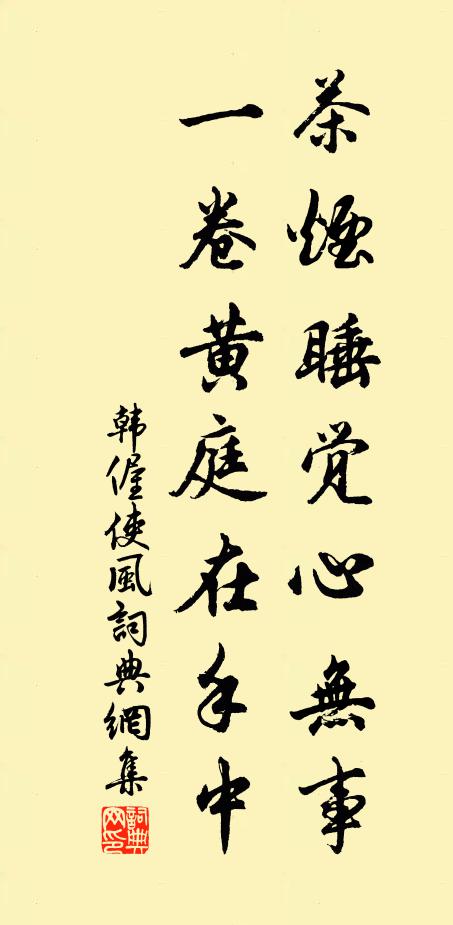 茶煙睡觉心無事
一卷黄庭在手中
韩偓使風詞典網集
詞典网印